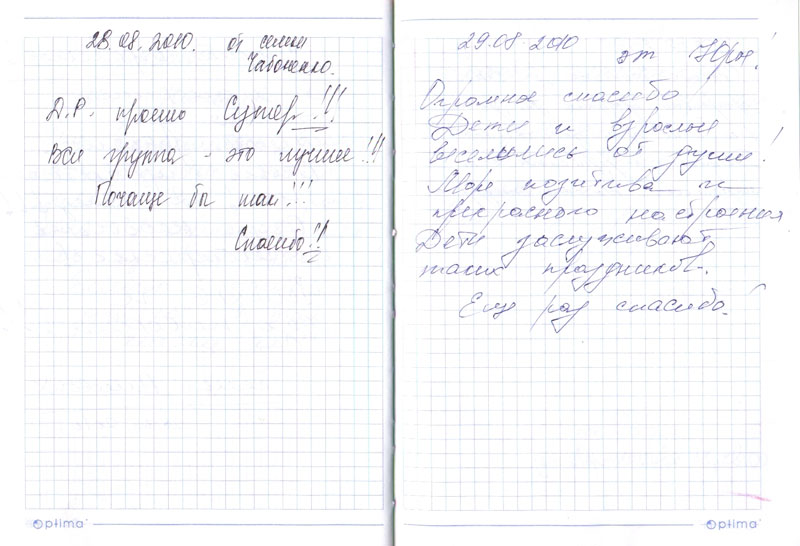 28.08.2010. от семьи
Чабоненко.
Д.Р. просто Супер!!!
Вся группа - это лучшее!!!
Почаще бы так!!!
Спасибо!!
Optima
29.08 2010
от Юры!
Огромное спасибо!
Дети и взрослые
веселились от души!
Море позитива и
прекрасного настроения
Дети заслуживают
таких праздников.
Еще раз спасибо!
Optima